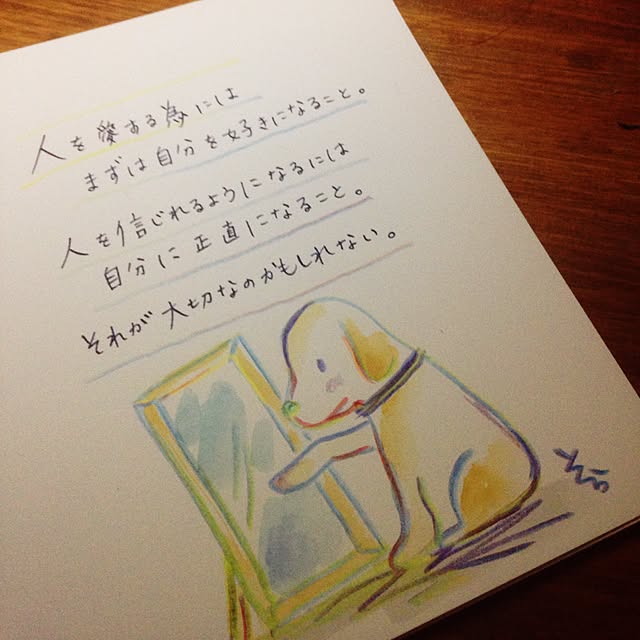 人を愛する為には
まずは自分を好きになること。
人を信じれるようになるには
自分に正直になること。
それが大切なのかもしれない。